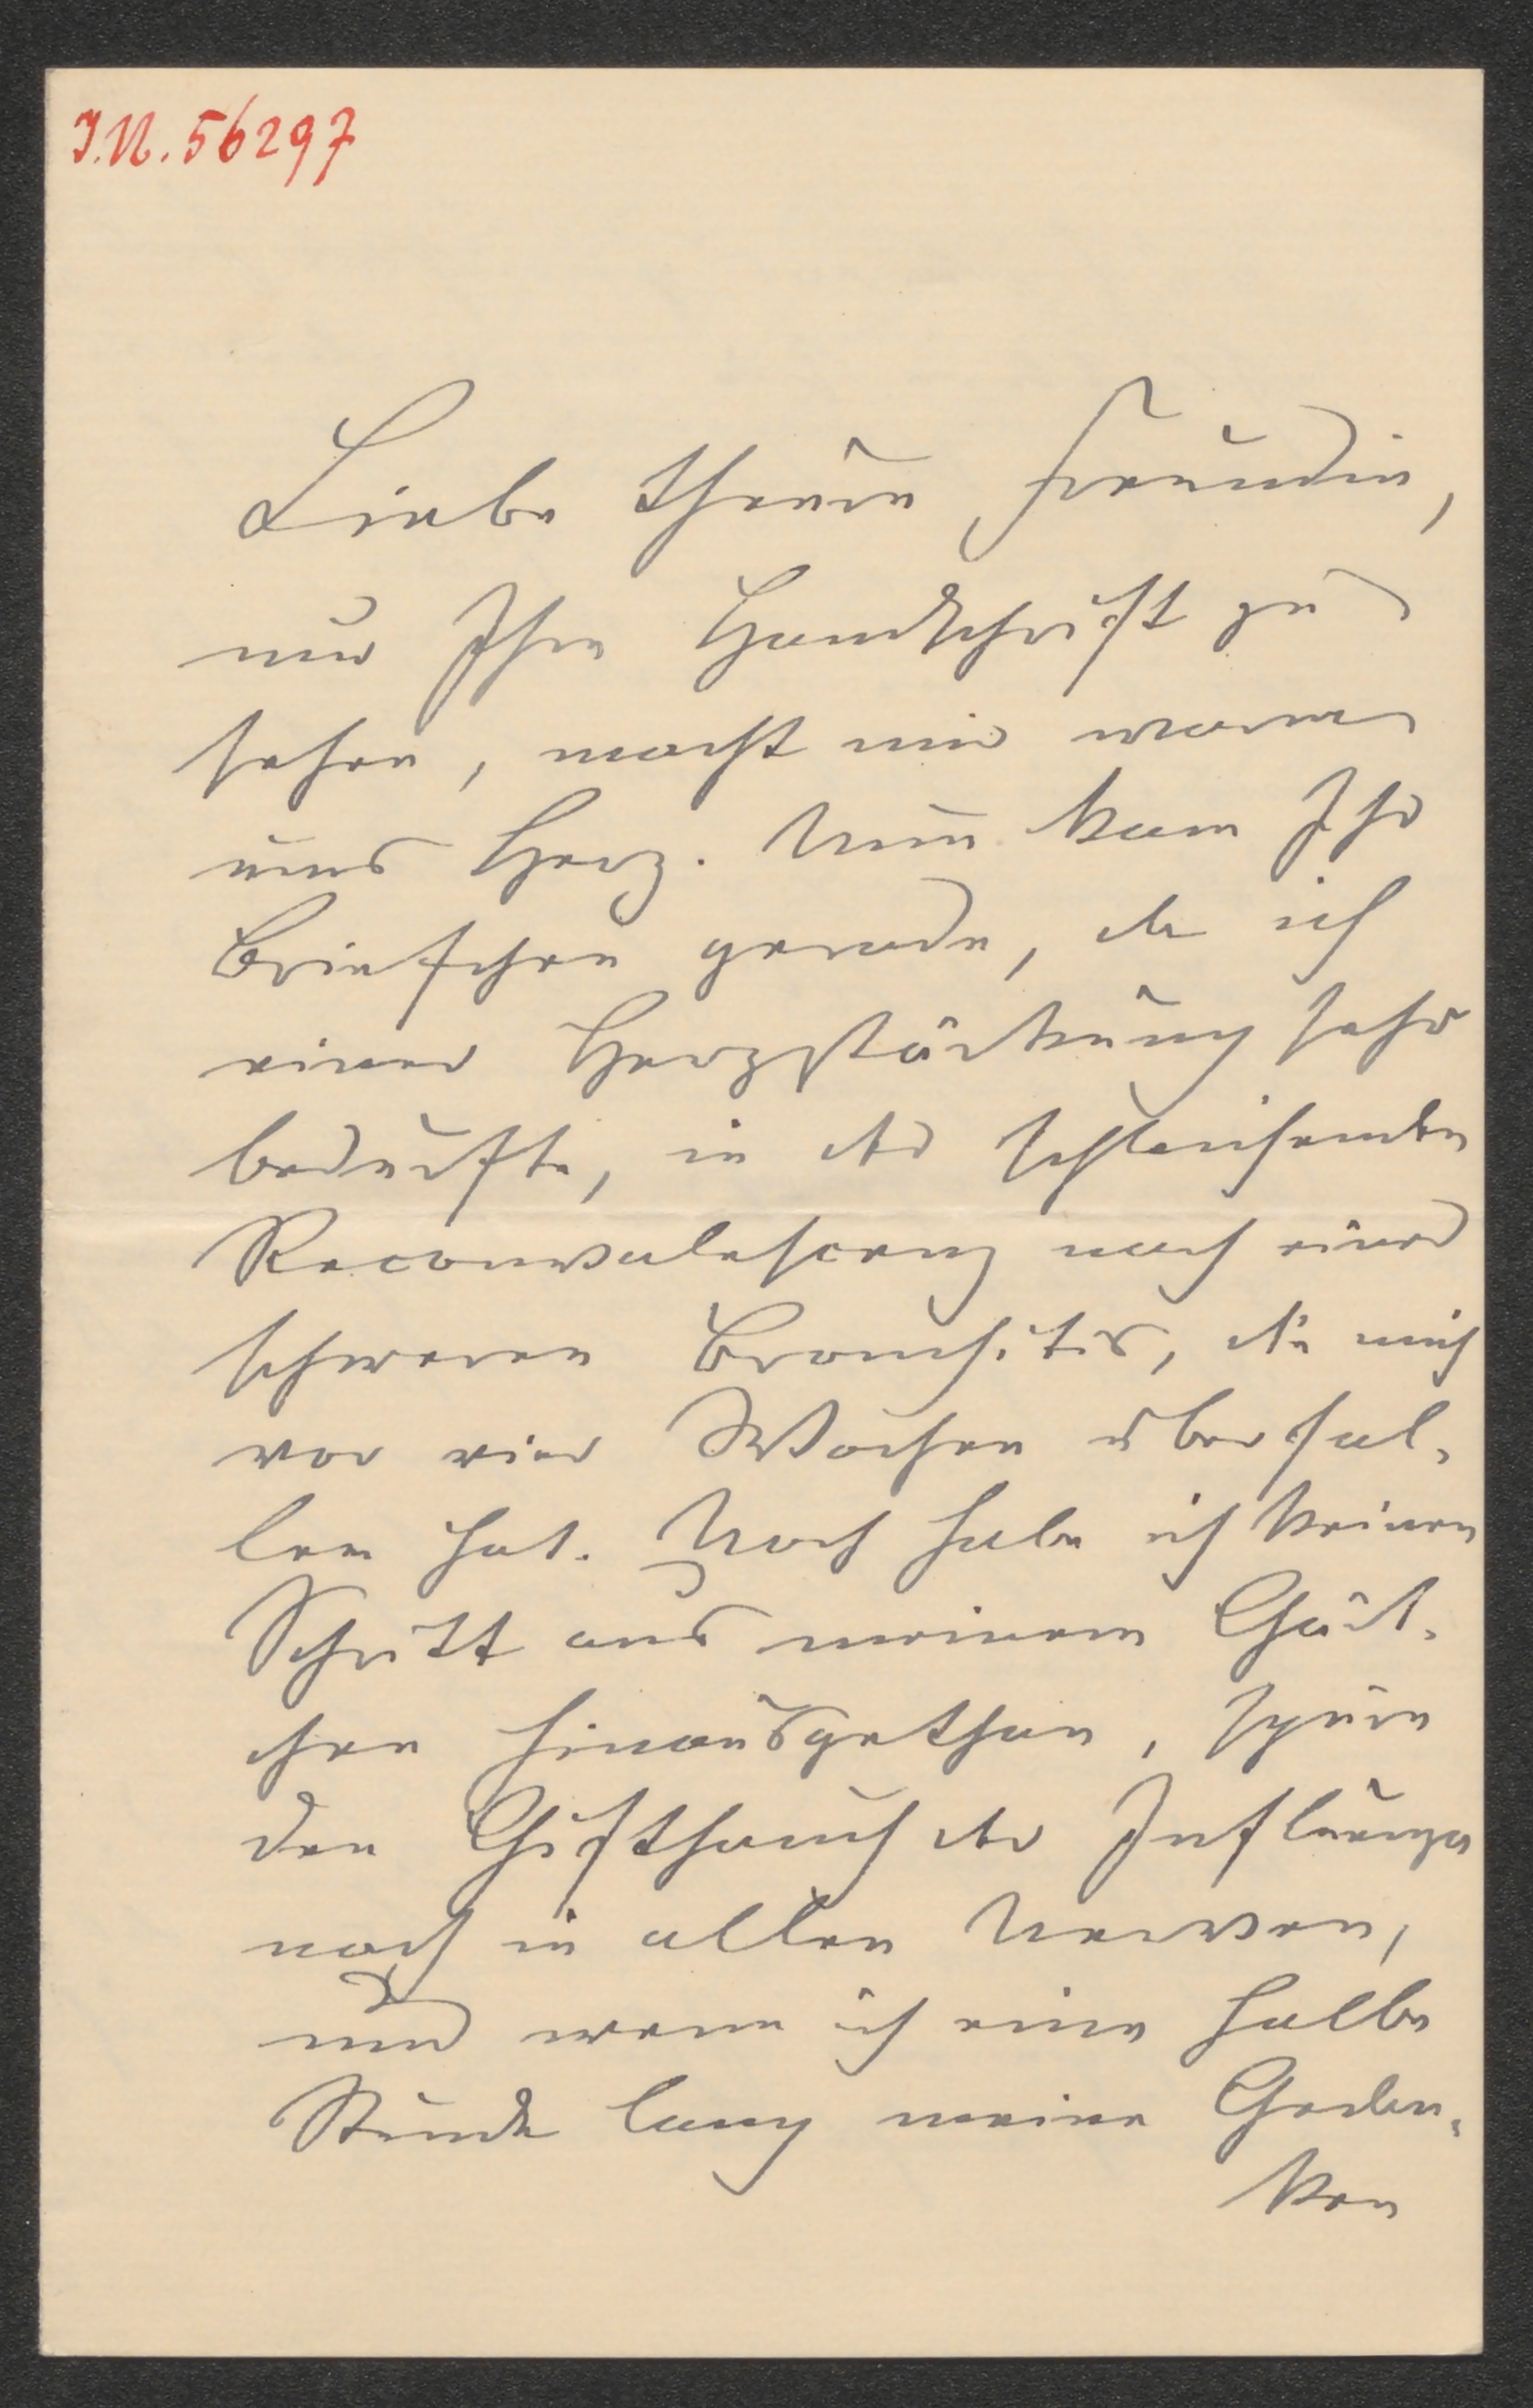 J.N. 56297
Liebe theure Freundin,
nur Ihre Handschrift zu
sehen, macht mir warm
ums Herz. Nun kam Ihr
Briefchen gerade, da ich
einer Herzstärkung sehr
bedurfte, in der schleichenden
Reconvalescenz nach einer
schweren Bronchitis, die mich
vor vier Wochen überfal-
len hat. Noch habe ich keinen
Schritt aus meinem Gärt-
chen hinausgethan, spüre
den Gifthauch der Influenza
noch in allen Nerven,
und wenn ich eine halbe
Stunde lang meine Gedan-
ken